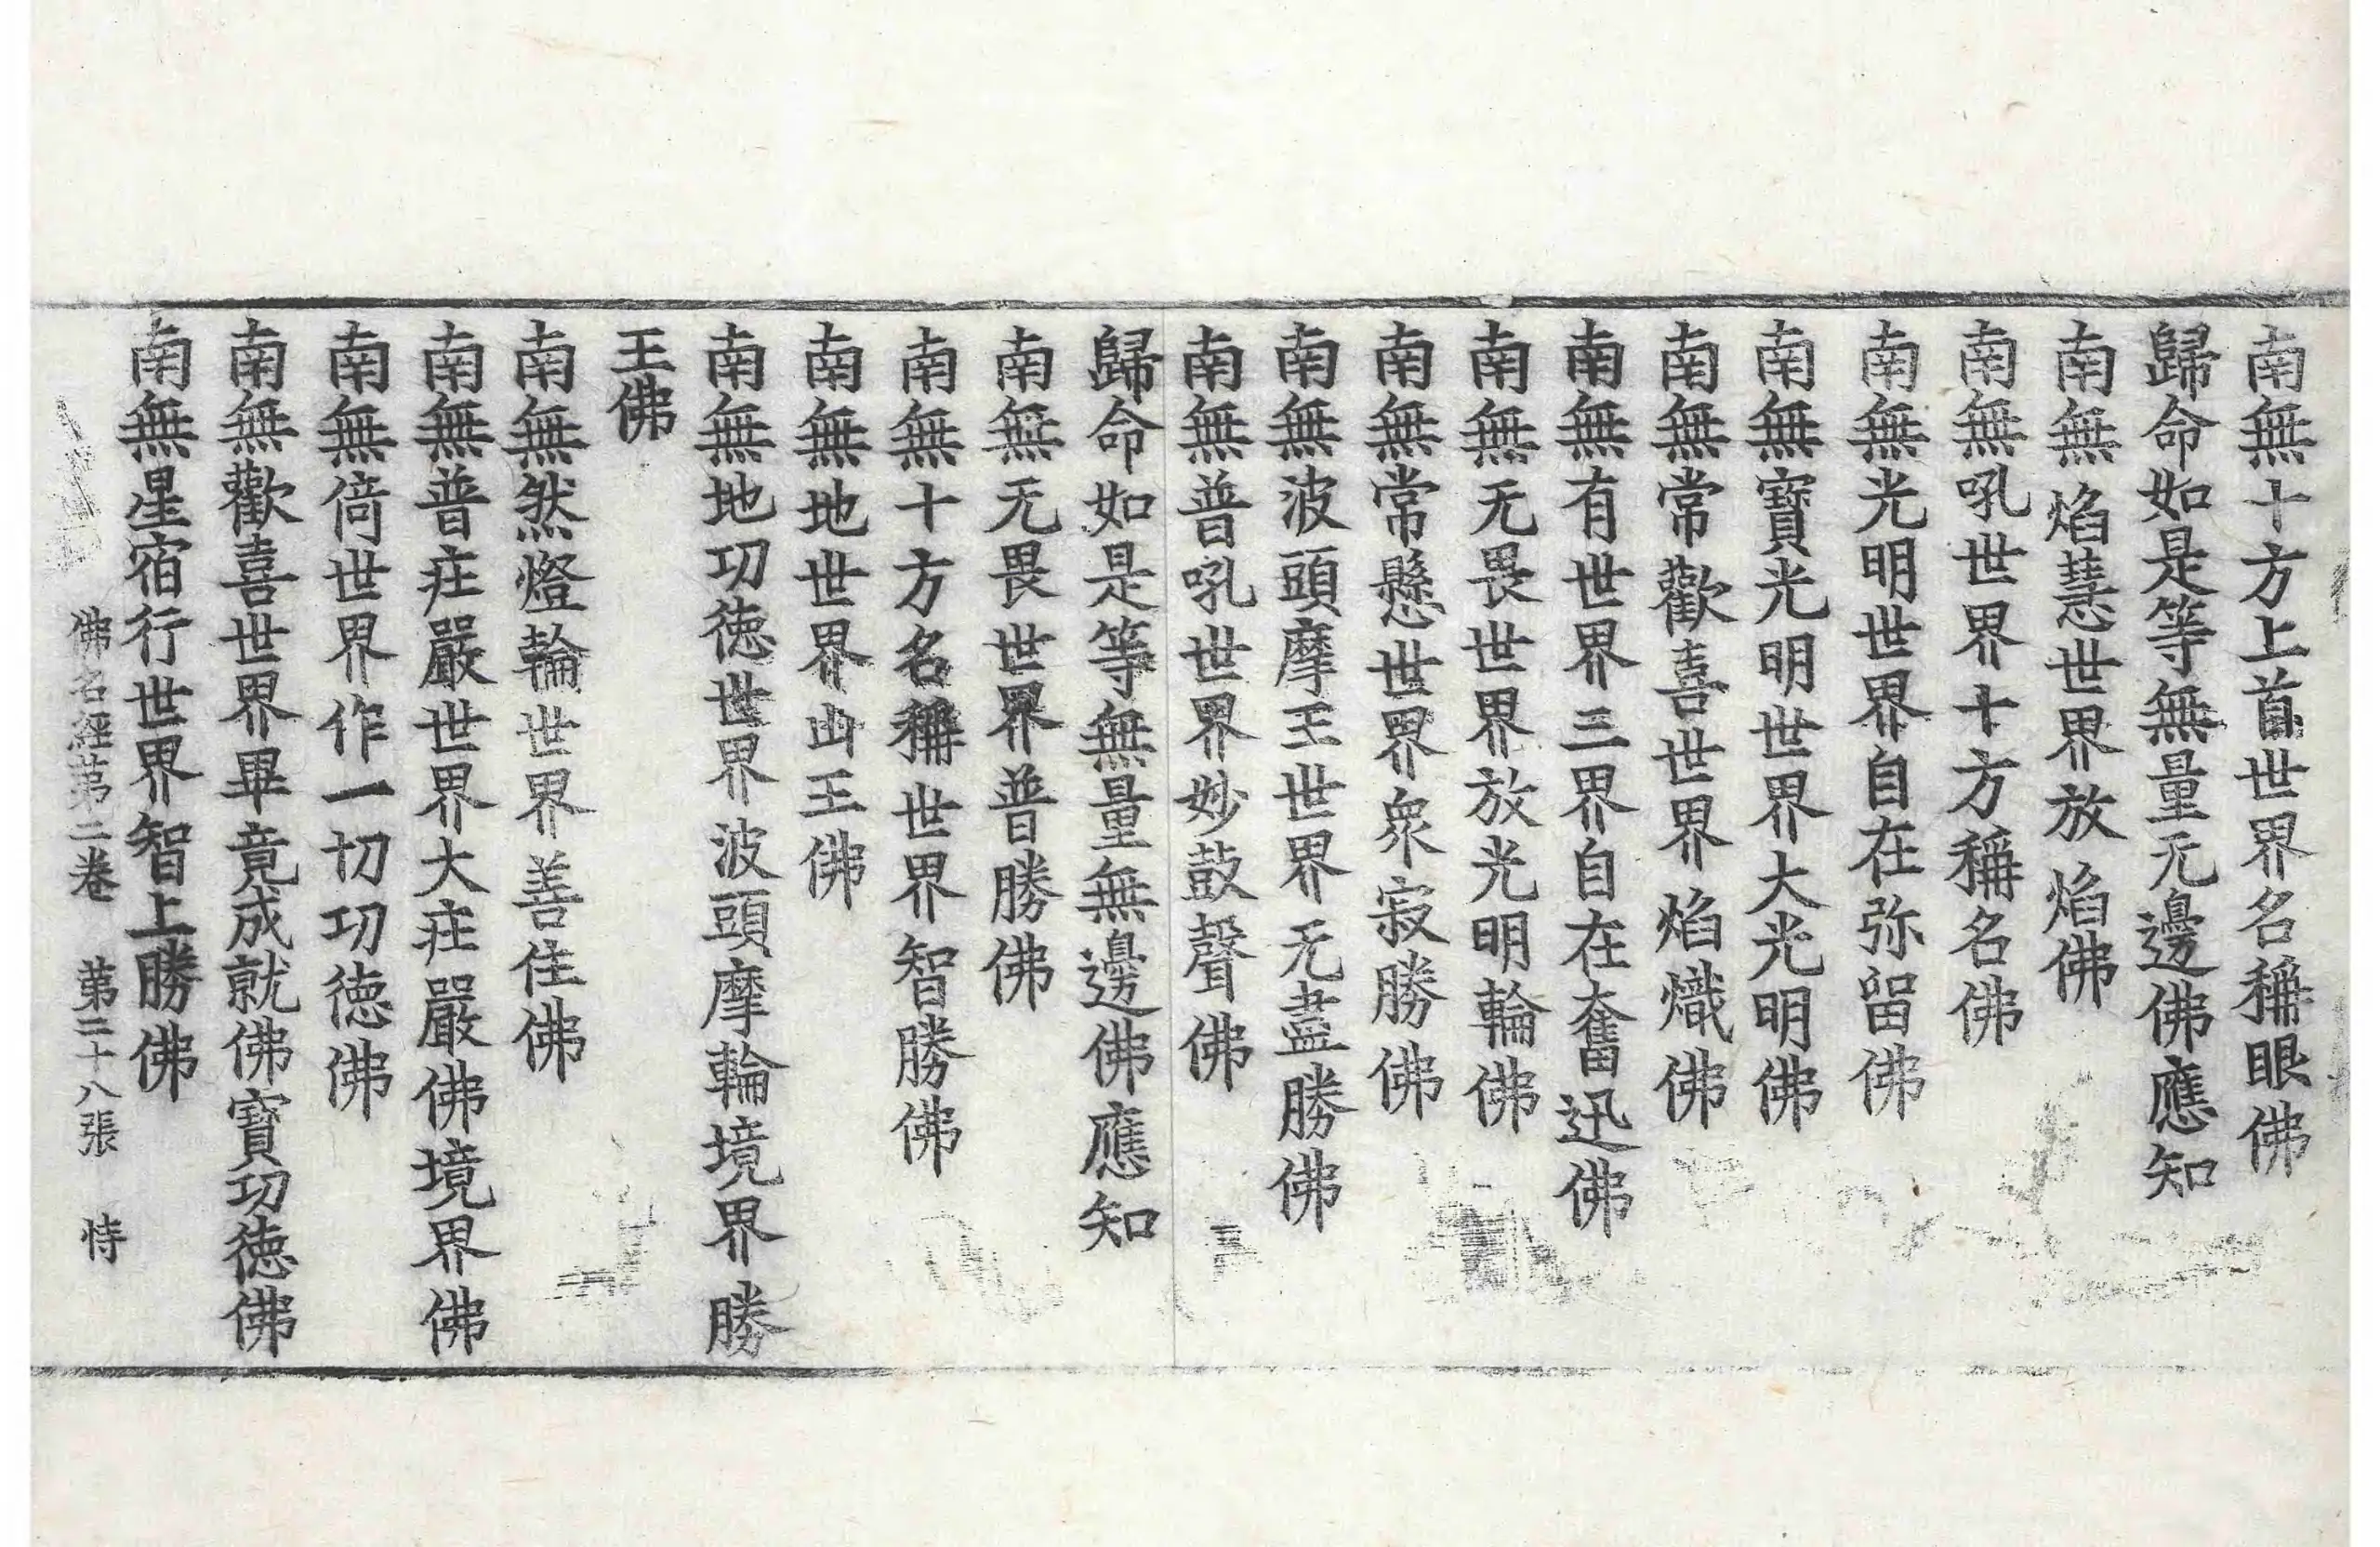 南無十方上首世界名稱眼佛
歸命如是等無量无邊佛應知
南無焰慧世界放焰佛
南無吼世界十方稱名佛
南無光明世界自在弥留佛
南無寶光明世界大光明佛
南無常歡喜世界焰熾佛
南無有世界三界自在奮迅佛
南無无畏世界放光明輪佛
南無常懸世界衆寂勝佛
南無波頭摩王世界无盡勝佛
南無普吼世界妙鼓聲佛
歸命如是等無量無邊佛應知
南無无畏世界普勝佛
南無十方名稱世界智勝佛
南無地世界山王佛
南無地功德世界波頭摩輪境界勝
王佛
南無然燈輪世界善住佛
南無普庄嚴世界大庄嚴佛境界佛
南無倚世界作一切功德佛
南無歡喜世界畢竟成就佛寶功德佛
南無星宿行世界智上勝佛
佛名經第二卷 第二十八張 恃